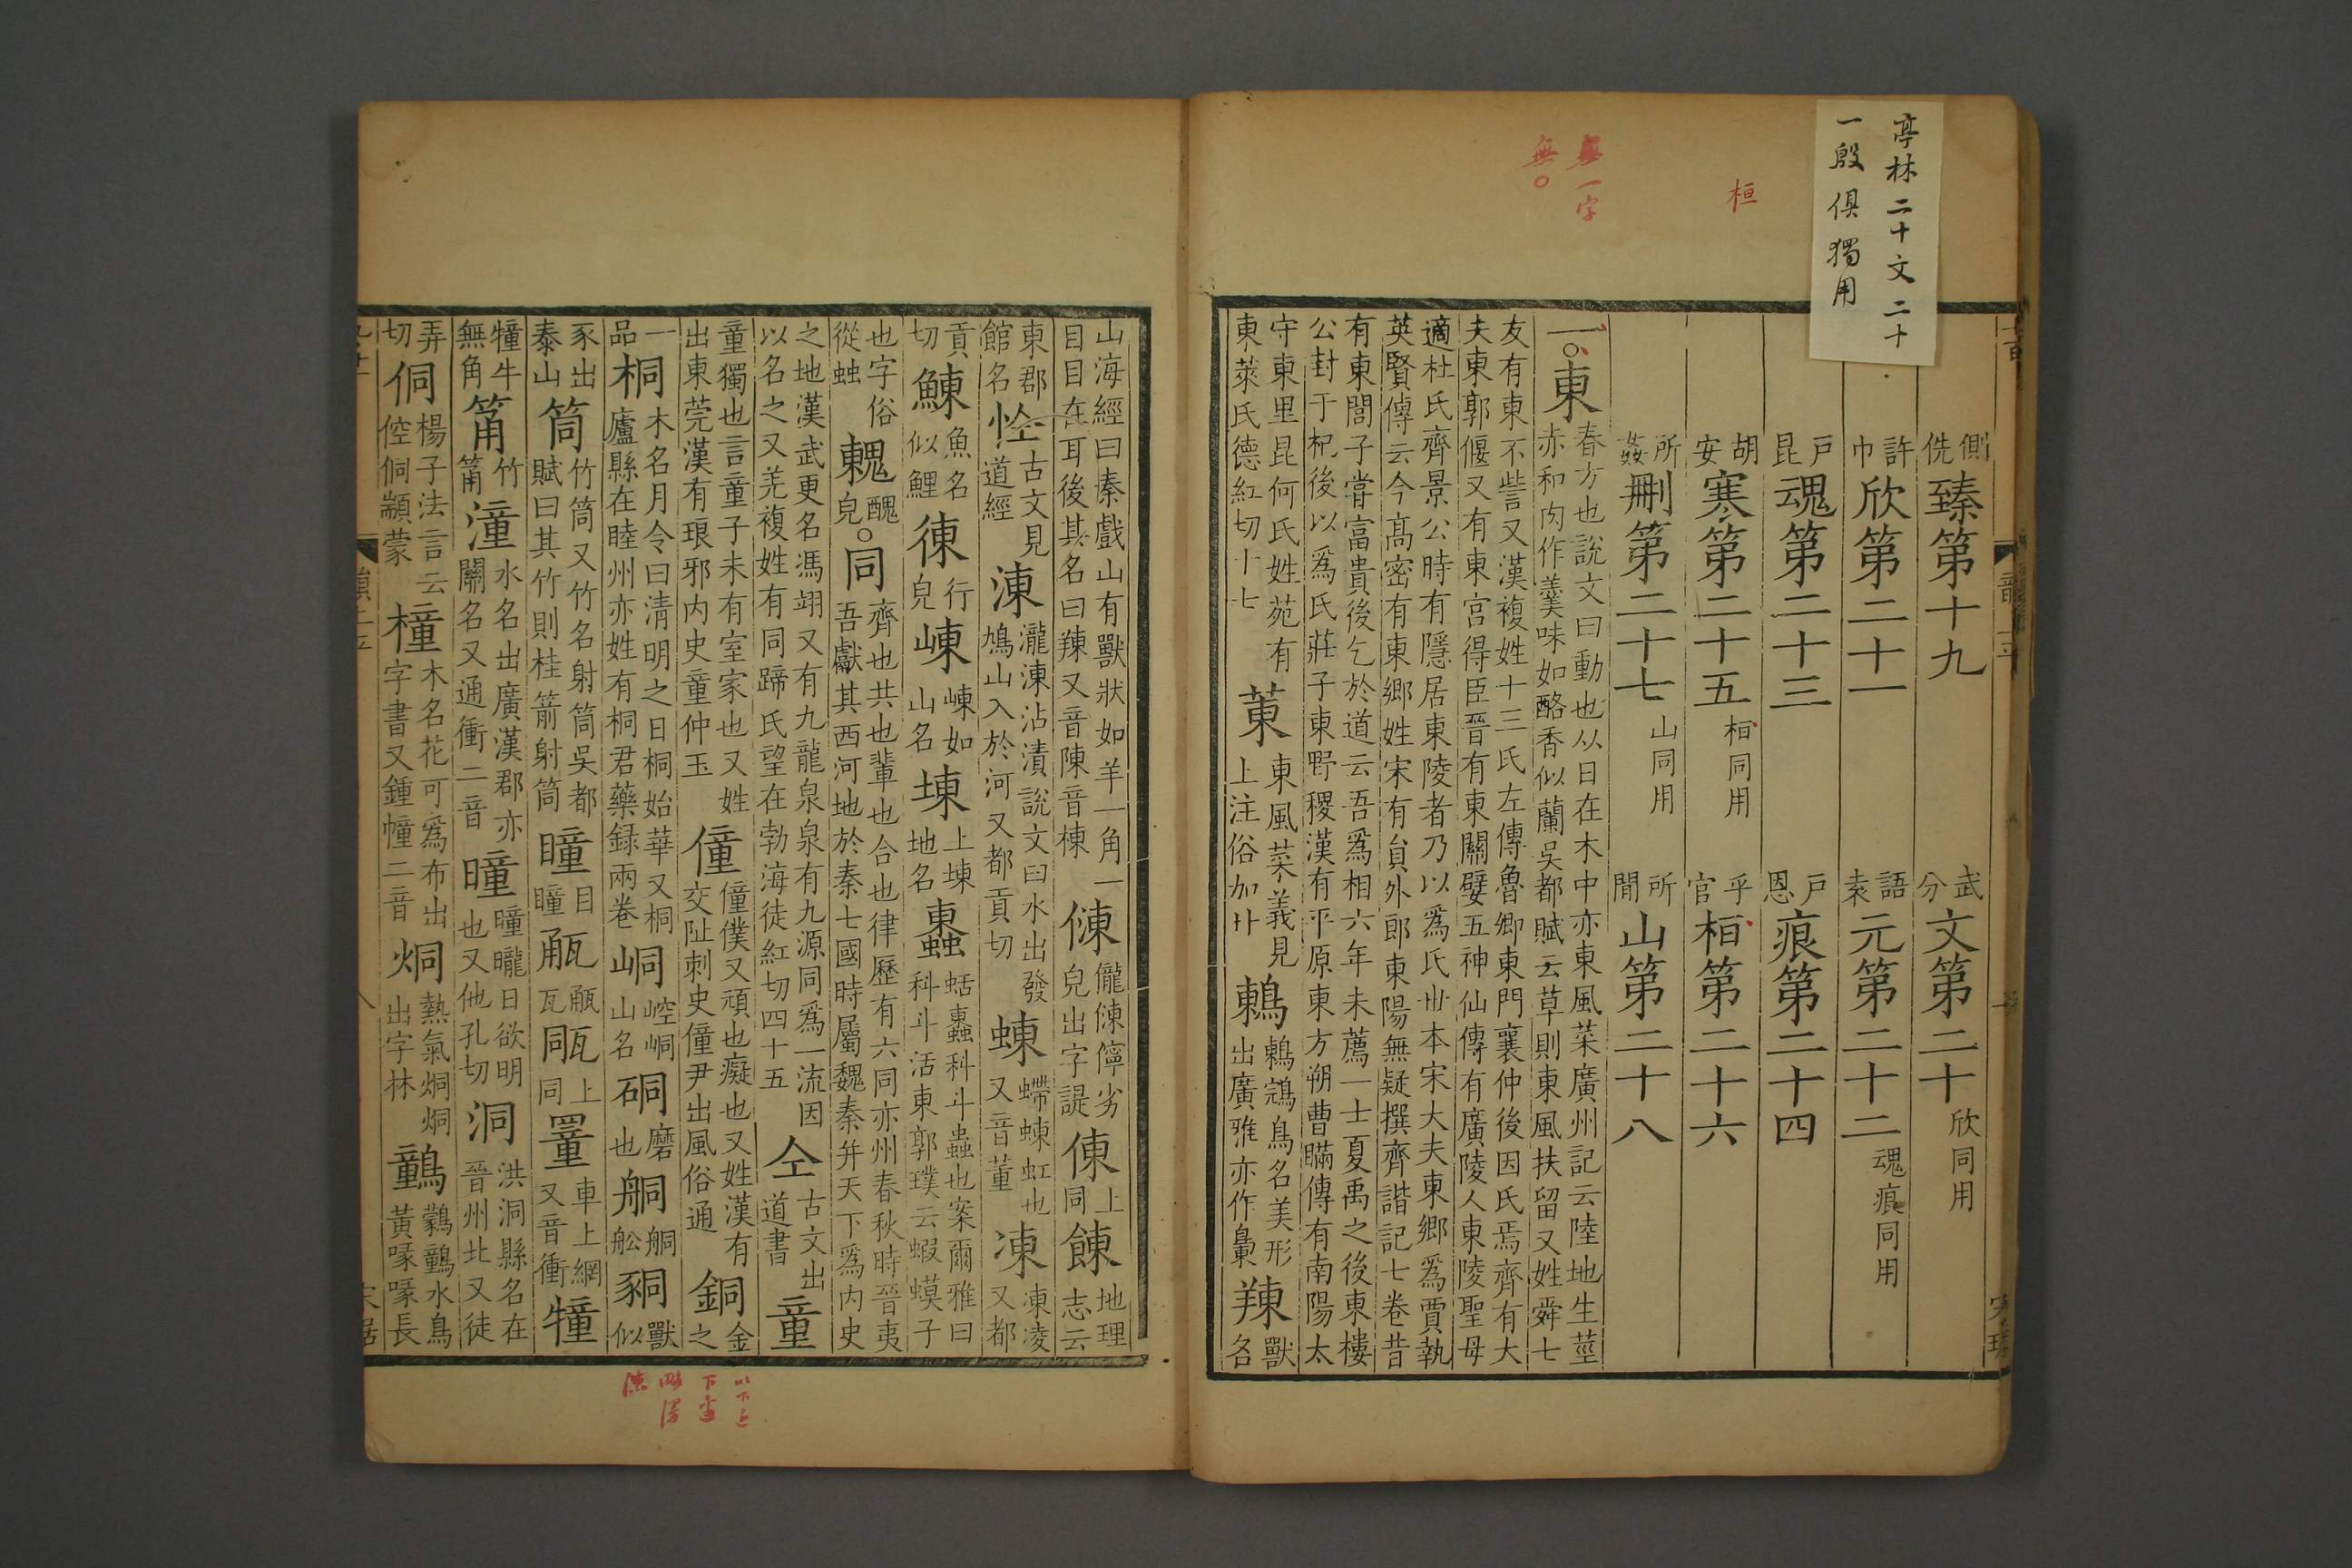 亭林二十文二十
一殷俱獨用
桓
無一字
無○
側侁臻第十九 武分文第二十欣同用
許巾欣第二十一 語袁元第二十二魂痕同用
戸昆魂第二十三 戸恩痕第二十四
胡安寒第二十五桓同用 乎官桓第二十六
所姦刪第二十七山同用 所閒山第二十八
一○東春方也說文曰動也从日在木中亦東風菜廣州記云陸地生莖赤和肉作羹味如酪香似蘭吳都賦云草則東風扶留又姓舜七
友有東不訾又漢複姓十三氏左傳魯卿東門襄仲後因氏焉齊有大夫東郭偃又有東宮得臣晉有東關嬖五神仙傳有廣陵人東陵聖母
適杜氏齊景公時有隱居東陵者乃以爲氏世本宋大夫東鄉爲賈執英賢傳云今高密有東鄉姓宋有員外郎東陽無疑撰齊諧記七卷昔
有東閭子嘗富貴後乞於道云吾爲相六年未薦一士夏禹之後東樓公封于杞後以爲氏莊子東野稷漢有平原東方朔曹瞞傳有南陽太
守東里昆何氏姓苑有東萊氏德紅切十七菄東風菜義見上注俗加卄鶇鶇鵍鳥名美形出廣雅亦作𩣳䍶獸名
山海經曰秦戲山有獸狀如羊一角一目目在耳後其名曰䍶又音陳音棟𠍀儱𠍀儜劣皃出字諟倲上同餗地理志云
東郡館名𢘐古文見道經涷瀧涷沾漬說文曰水出發鳩山入於河又都貢切蝀螮蝀虹也又音董凍凍凌又都
貢切鯟魚名似鯉徚行皃崠崠如山名埬上埬地名䗬蛞䗬科斗蟲也案爾雅曰科斗活東郭璞云蝦蟆子
也字俗從䖵䰤醜皃○同齊也共也輩也合也律歷有六同亦州春秋時晉夷吾獻其西河地於秦七國時屬魏秦并天下爲內史
之地漢武更名馮翊又有九龍泉泉有九源同爲一流因以名之又羌複姓有同蹄氏望在勃海徒紅切四十五仝古文出道書童
童獨也言童子未有室家也又姓出東莞漢有琅邪內史童仲玉僮僮僕又頑也癡也又姓漢有交阯刺史僮尹出風俗通銅金之
一品桐木名月令曰清明之日桐始華又桐廬縣在睦州亦姓有桐君藥録兩卷峒崆峒山名硐磨也舸舸舩䝋獸似
豕出泰山筒竹筒又竹名射筒吳都賦曰其竹則桂箭射筒瞳目瞳㼧㼧瓦𤭁上同罿車上網又音衝犝
犝牛無角筩竹筩潼水名出廣漢郡亦關名又通衝二音曈曈曨日欲明也又他孔切洞洪洞縣名在晉州北又徒
弄切侗楊子法言云倥侗顓蒙橦木名花可爲布出字書又鍾幢二音烔熱氣烔烔出字林鷛鸏鷛水鳥黃喙喙長